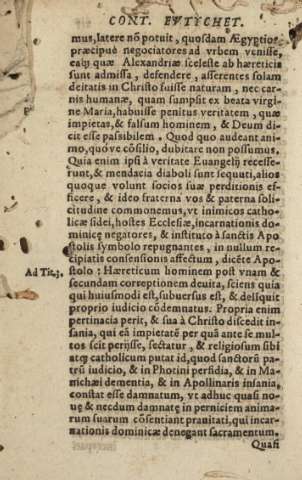 CONT. EVTYCHET.
mus, latere nõ potuit, quosdam Ægyptios
præcipuè negociatores ad vrbem venisse,
eaq́; quæ Alexandriæ sceleste ab hæreticis
sunt admissa, defendere, asserentes solam
deitatis in Christo fuisse naturam, nec car-
nis humanæ, quam sumpsit ex beata virgi-
ne Maria, habuisse penitus veritatem, quæ
impietas, & falsum hominem, & Deum di-
cit esse passibilem, Quod quo audeant ani-
mo, quóve cõsilio, dubitare non possumus.
Quia enim ipsi à veritate Euangelij recesse-
runt, & mendacia diaboli sunt sequuti, alios
quoque volunt socios suæ perditionis ef-
ficere, & ideo fraterna vos & paterna soli-
citudine commonemus, vt inimicos catho-
licæ fidei, hostes Ecclesiæ, incarnationis do-
minicę negatores, & instituto à sanctis Apo
stolis symbolo repugnantes, in nullum re-
cipiatis consensionis affectum, dicẽte Apo-
Ad Tit. 3.
stolo: Hæreticum hominem post vnam &
secundam correptionem deuita, sciens quia
qui huiusmodi est, subuersus est, & delĩquit
proprio iudicio cõdemnatus. Propria enim
pertinacia perit, & sua à Christo discedit in-
sania, qui eã impietatẽ per quã ante se mul-
tos scit perijsse, sectatur, & religiosum sibi
atq; catholicum putat id, quod sanctorũ pa-
trũ iudicio, & in Photini perfidia, & in Ma-
nichæi dementia, & in Apollinaris insania,
constat esse damnatum, vt adhuc quasi no-
uę & necdum damnatę in perniciem anima-
rum suarum cõsentiant prauitati, qui incar-
nationis dominicæ denegant sacramentum.
Quasi